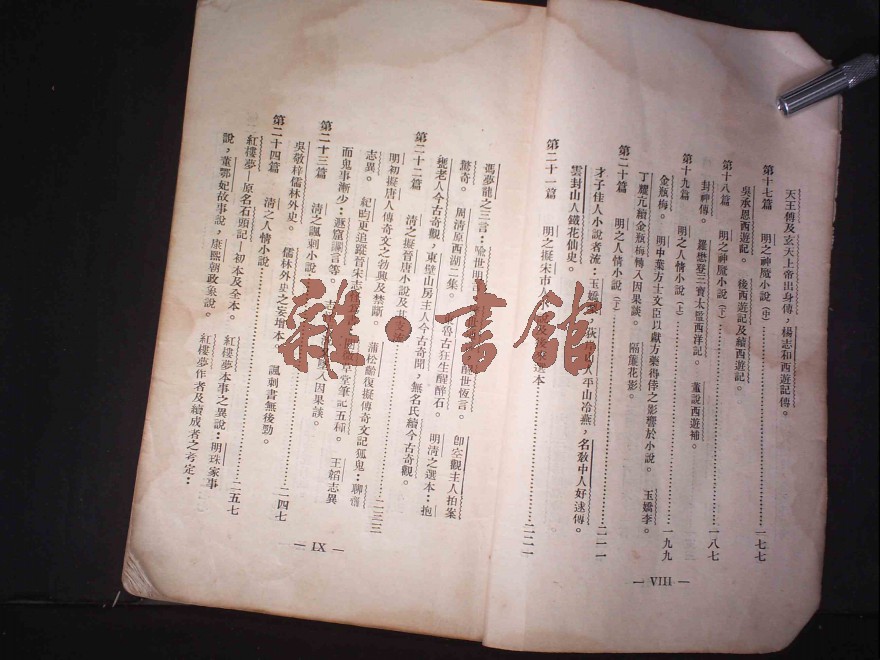 天王傳及玄天上帝出身傳，楊志和西遊記傳。
第十七篇 明之神魔小說(中)…………一七七
吳承恩西遊記。 後西遊記及續西遊記。
第十八篇 明之神魔小說(下)…………一八七
封神傳。 羅懋登三寶太監西洋記。 董說西遊補。
第十九篇 明之人情小說(上)…………一九九
金瓶梅。 明中葉方士文臣以獻方藥得倖之影響於小說。 玉嬌李。
丁耀亢續金瓶梅轉入因果談。 隔簾花影。
第二十篇 明之人情小說(下)…………二一一
才子佳人小說者流：玉嬌 人平山冷燕，名敎中人好逑傳。
雲封山人鐵花仙史。
第二十一篇 明之擬宋市 本…………二二一
— VIII —
馮夢龍之三言：喩世明言 醒世恆言。 卽空觀主人拍案
驚奇。 周淸原西湖二集。 魯古狂生醒醉石。 明淸之選本：抱
甕老人今古奇觀，東壁山房主人今古奇聞，無名氏續今古奇觀。
第二十二篇 淸之擬晉唐小說及其支流…………二三三
明初擬唐人傳奇文之勃興及禁斷。 蒲松齡復擬傳奇文記狐鬼：聊齋
志異。 紀昀更追蹤晉宋志 草堂筆記五種。 王韜志異
而鬼事漸少：遯窟讕言等。 志 入因果談。
第二十三篇 淸之諷刺小說…………二四七
吳敬梓儒林外史。 儒林外史之妄增本。 諷刺書無後勁。
第二十四篇 淸之人情小說…………二五七
紅樓夢—原名石頭記—初本及全本。 紅樓夢本事之異說：明珠家事
說，董鄂妃故事說，康熙朝政象說。 紅樓夢作者及續成者之考定：
— IX —
雜·書館